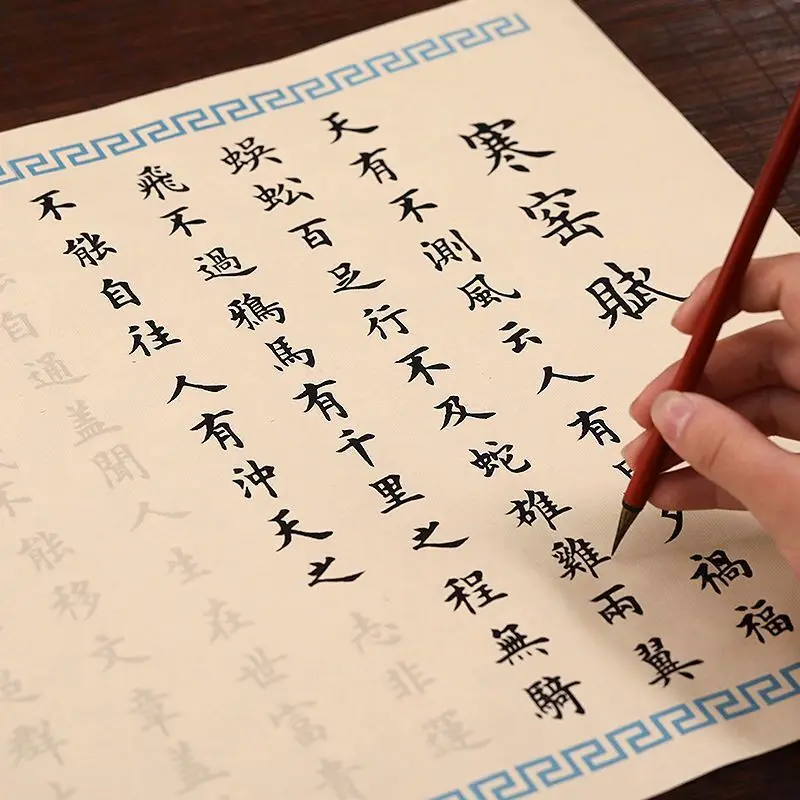 寒窑賦
天有不測風云人有禍福
蜈蚣百足行不及蛇雄雞兩翼
飛不過鴉馬有千里之程無騎
不能自往人有沖天之志非運
自通盖聞人生在世富貴
不能移文章盖
群